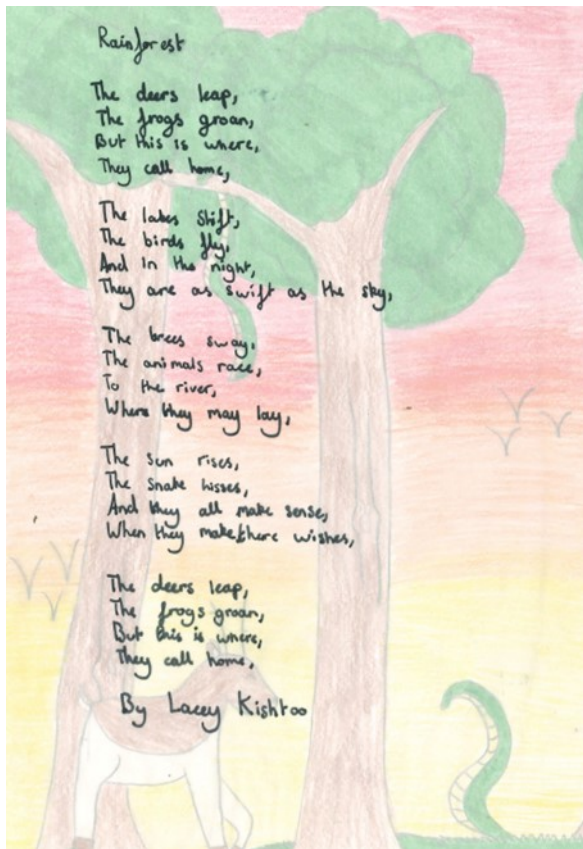 Rainforest
The deers leap,
The frogs groan,
But this is where,
They call home,
The lakes shift,
The birds fly,
And In the night,
They are as swift as the sky,
The trees sway,
The animals race,
To the river,
Where they may lay,
The sun rises,
The snake hisses,
And they all make sense,
When they make there wishes,
The deers leap,
The frogs groan,
But this is where,
They call home,
By Lacey Kishtoo